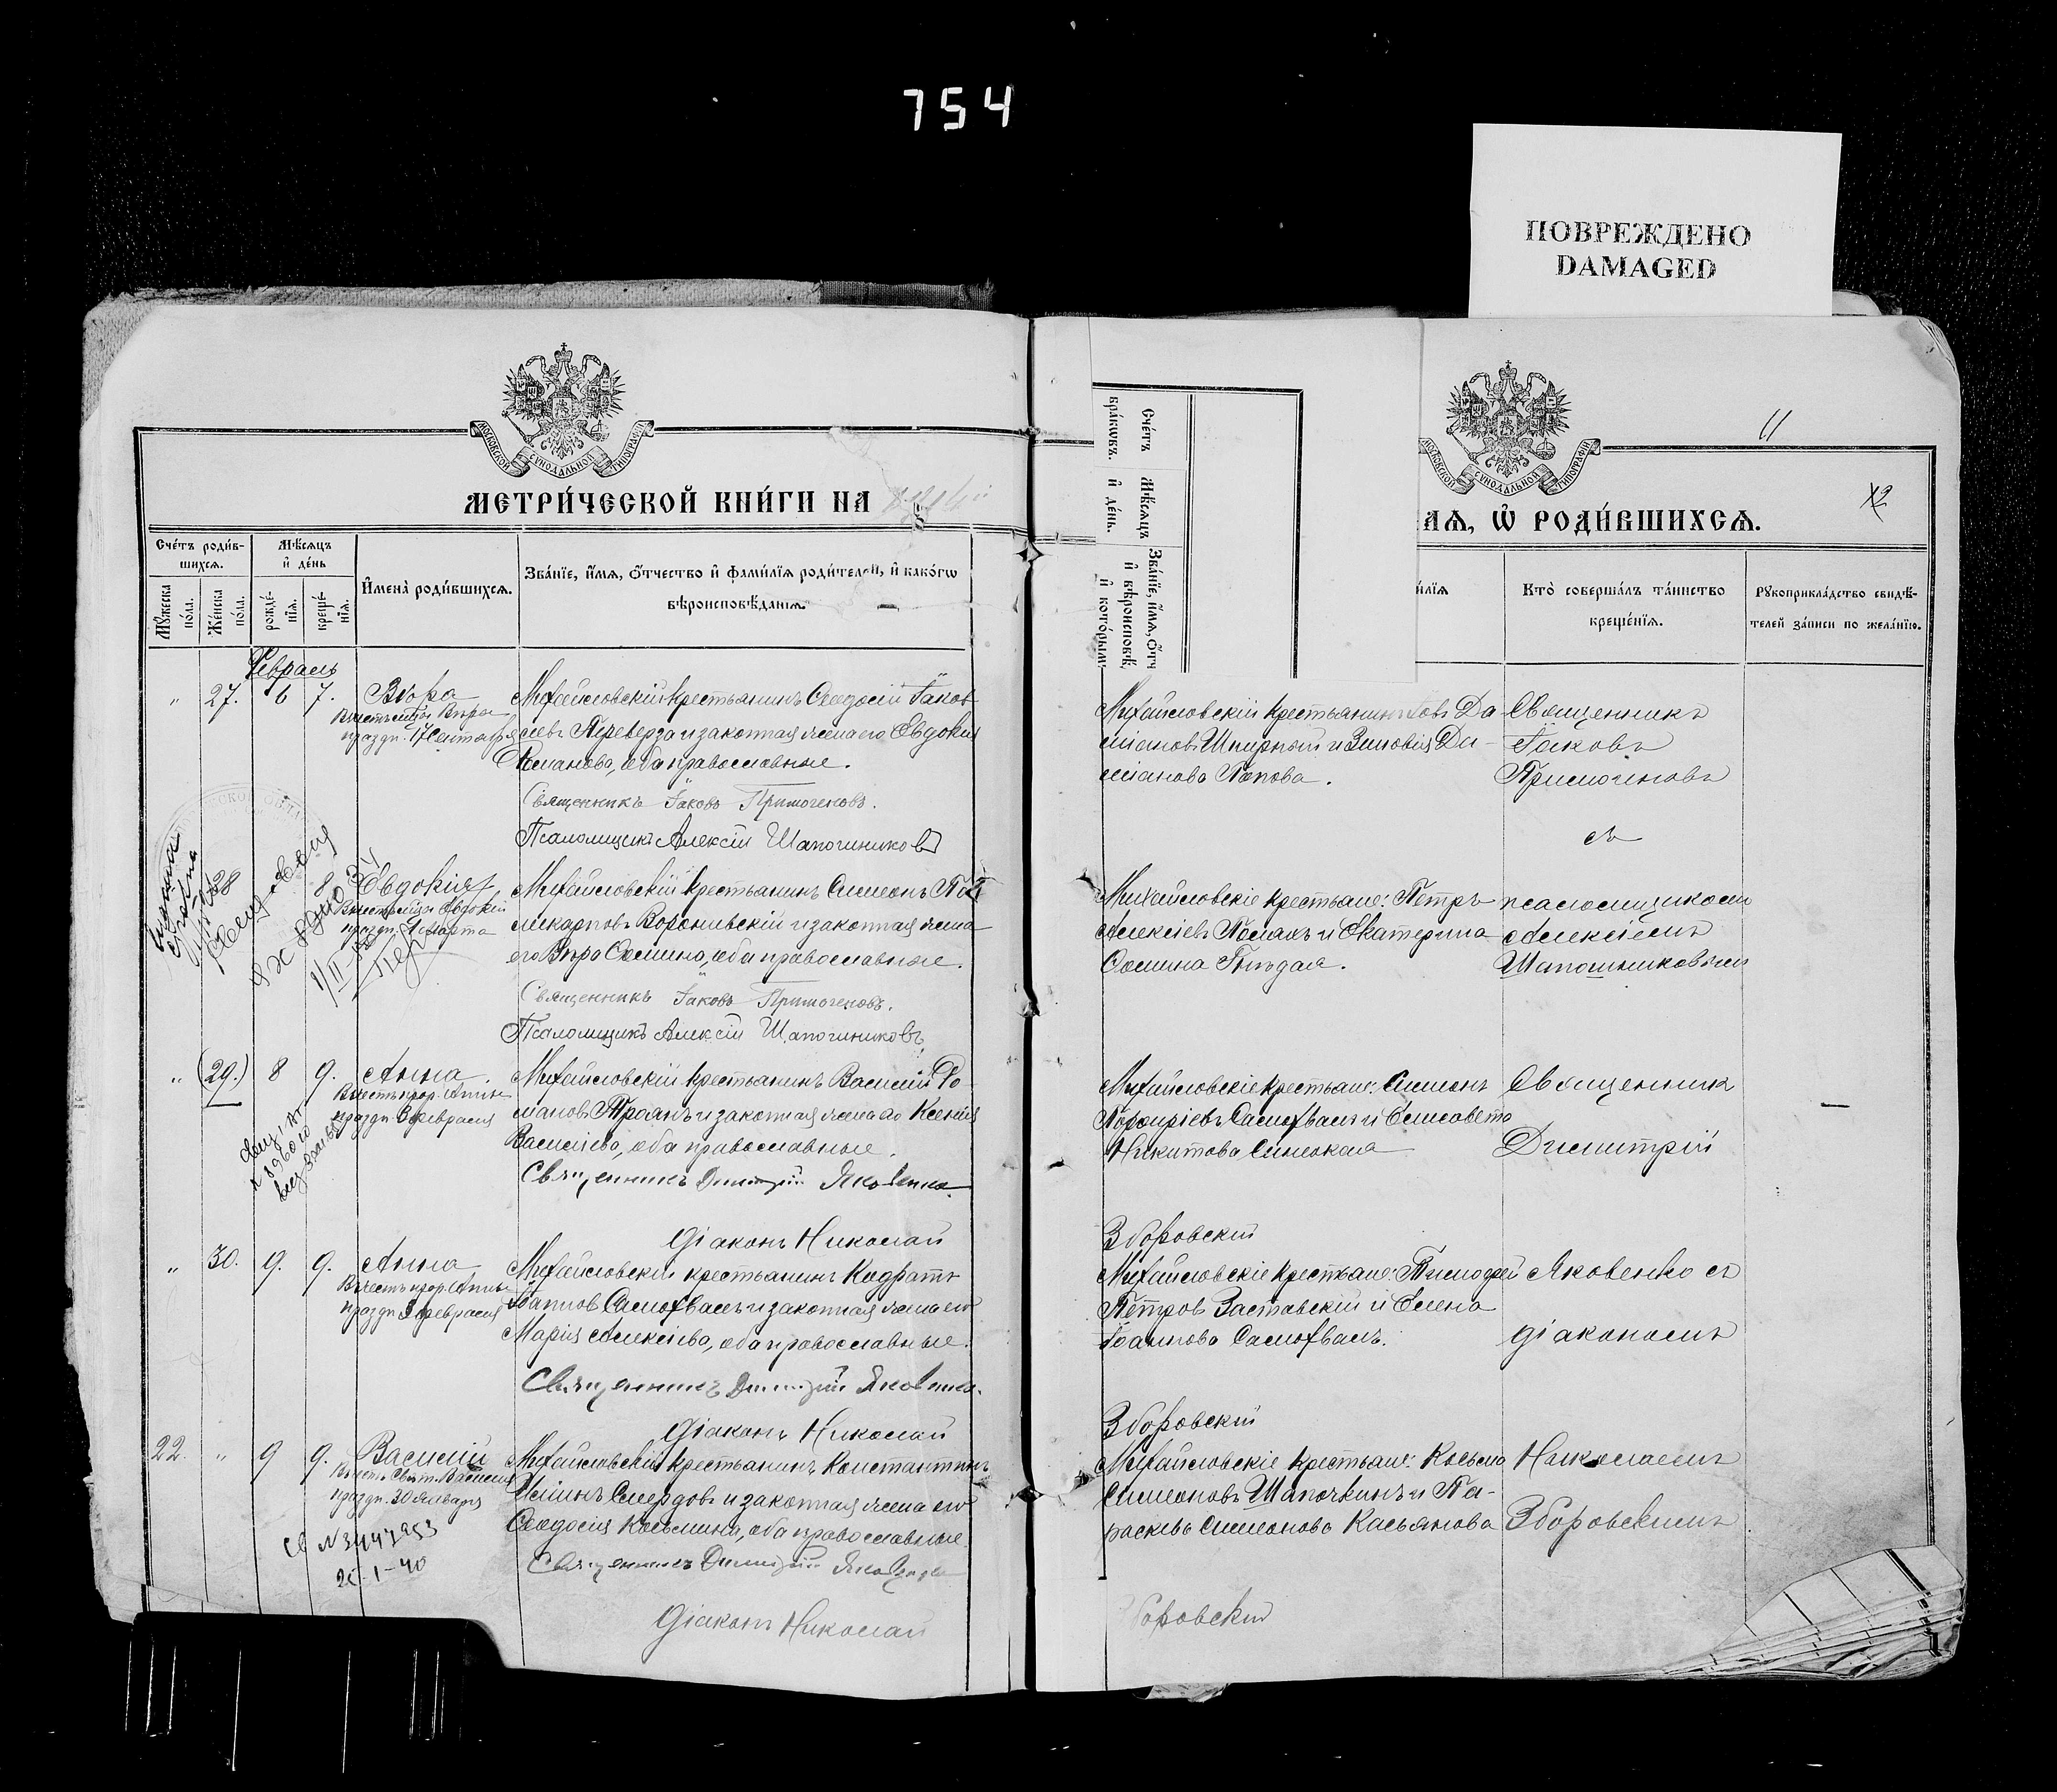 754
ПОВРЕЖДЕНО
DAMAGED
МОСКОВСКОЙ СѴНОДАЛЬНОЙ ТИПОГРАФІИ
МЕТРИ́ЧЕСКОЙ КНИ́ГИ НА
Сче́тъ роди́в-
шихсѧ.
Мѣ́сѧцъ
и҆ де́нь
Мꙋ́жеска
по́ла.
Же́нска
по́ла.
рожде́-
нїѧ.
креще́-
нїѧ.
И҆мена̀ роди́вшихсѧ.
Зва́нїе, и҆́мѧ, ѻ҆́тчество и҆ фами́лїѧ роди́телей, и҆ како́гѡ
вѣроисповѣ́данїѧ.
Февраль
" 27. 6 7. Вѣра
В честь мц. Вѣры
праздн. 17 Сентября
Михайловскій крестьянинъ Ѳеодосій Іаков-
левъ Переверза и законная жена его Евдокія
Романова, оба православные.
Священникъ Іаковъ Примогеновъ.
Псаломщикъ Алексій Шапошниковъ
28 8 Евдокія
В честь мц. Евдокіи
праздн. 1 марта
Михайловскій крестьянинъ Симеонъ По-
ликарповъ Воронивскій и законная жена
его Вѣра Ѳомина, оба православные.
Священникъ Іаковъ Примогеновъ.
Псаломщикъ Алексій Шапошниковъ
" (29.) 8 9. Анна
В честь прор. Анны
праздн. 3 февраля
Михайловскій крестьянинъ Василій Ро-
мановъ Троянъ и законная жена его Ксенія
Василіева, оба православные.
Священникъ Димитрій Яковенко.
Діаконъ Николай
" 30. 9. 9. Анна
В честь прор. Анны
праздн. 3 февраля
Михайловскій крестьянинъ Кодратъ
Іоанновъ Самофалъ и законная жена его
Марія Алексіева, оба православные.
Священникъ Димитрій Яковенко.
Діаконъ Николай
22. " 9 9. Василій
В честь Свят. Василія
праздн. 30 Января
Михайловскій крестьянинъ Константинъ
Смердовъ и законная жена его
Ѳеодосія Косьмина, оба православные.
Священникъ Димитрій Яковенко
Діаконъ Николай
св N3447953
26-1-40
11
12
Сче́тъ
бра́кѡвъ.
Мѣ́сѧцъ
и҆ де́нь.
Зва́нїе, и҆́мѧ, ѻ҆́тч
и҆ вѣроисповѣ́
и҆ кото́рым
МОСКОВСКОЙ СѴНОДАЛЬНОЙ ТИПОГРАФІИ
ЛѦ, Ѡ҆ РОДИ́ВШИХСѦ.
и́лїѧ
Кто̀ соверша́лъ та́инство
креще́нїѧ.
Рꙋкоприкла́дство свидѣ́-
телей за́писи по жела́нїю.
Михайловскій крестьянинъ Да-
міановъ Шпирный и Зиновія Да-
міанова Попова.
Священникъ
Іаковъ
Примогеновъ
съ
Михайловскіе крестьяне: Петръ
Алексіевъ Полякъ и Екатерина
Ѳомина Гнѣдая.
псаломщикомъ
Алексіемъ
Шапошниковымъ
Михайловскіе крестьяне: Симеонъ
Порфиріевъ Самофалъ и Елисавета
Никитова
Священникъ
Димитрій
Зборовскій
Михайловскіе крестьяне: Тимофей
Петровъ Заставскій и Елена
Іоаннова Самофалъ.
Яковенко съ
діакономъ
Зборовскій
Михайловскіе крестьяне: Косьма
Симеоновъ Шапочкинъ и Па-
раскева Симеонова Касьянова
Николаемъ
Зборовскимъ
боровскій